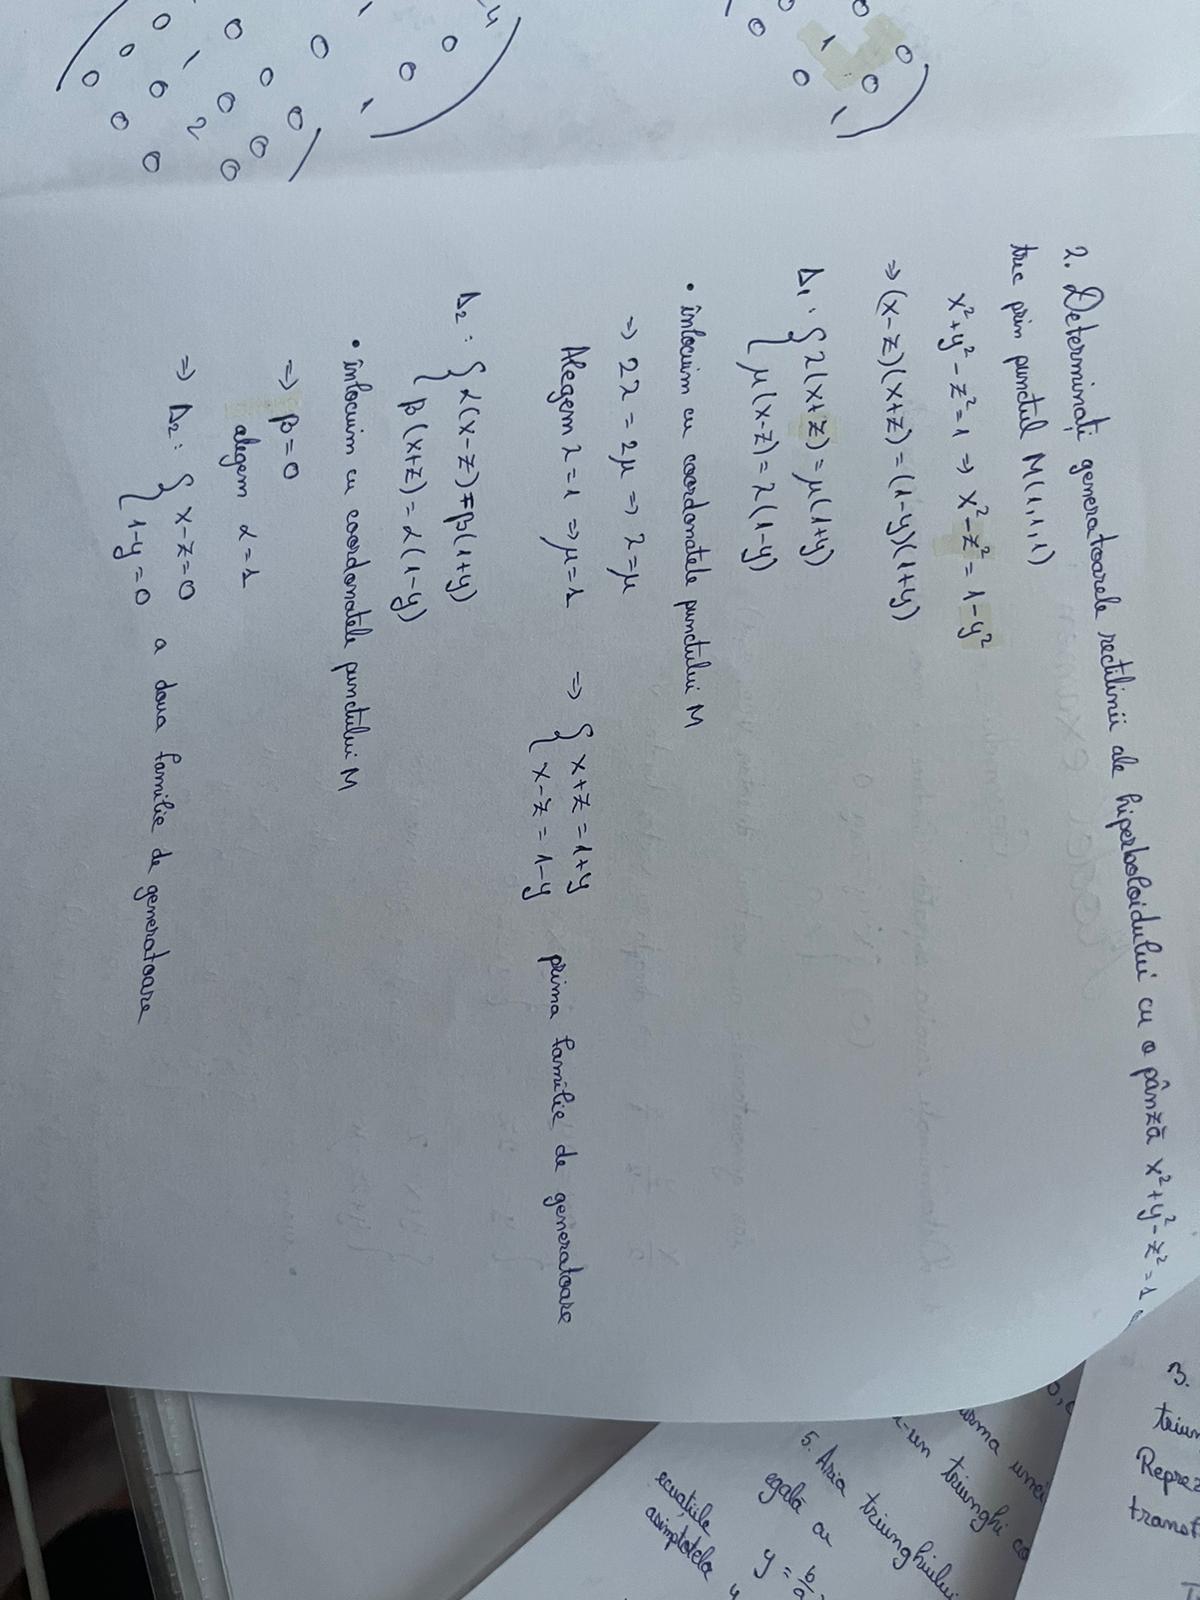 2. Determinați generatoarele rectilinii ale hiperboloidului cu o pânză x²+y²-z²=1
trec prin punctul M(1,1,1)
x²+y²-z²=1 => x²-z²=1-y²
=> (x-z)(x+z)=(1-y)(1+y)
Δ₁: { λ(x+z)=μ(1+y)
μ(x-z)=λ(1-y)
• înlocuim cu coordonatele punctului M
=> 2λ=2μ => λ=μ
Alegem λ=1 => μ=1 => { x+z=1+y
x-z=1-y prima familie de generatoare
Δ₂: { α(x-z)=β(1+y)
β(x+z)=α(1-y)
• înlocuim cu coordonatele punctului M
=> β=0
alegem α=1
=> Δ₂: { x-z=0
1-y=0 a doua familie de generatoare
3.
Reprez
5. Aria triunghiului
egală cu
y=b/a
ecuațiile
asimptotela